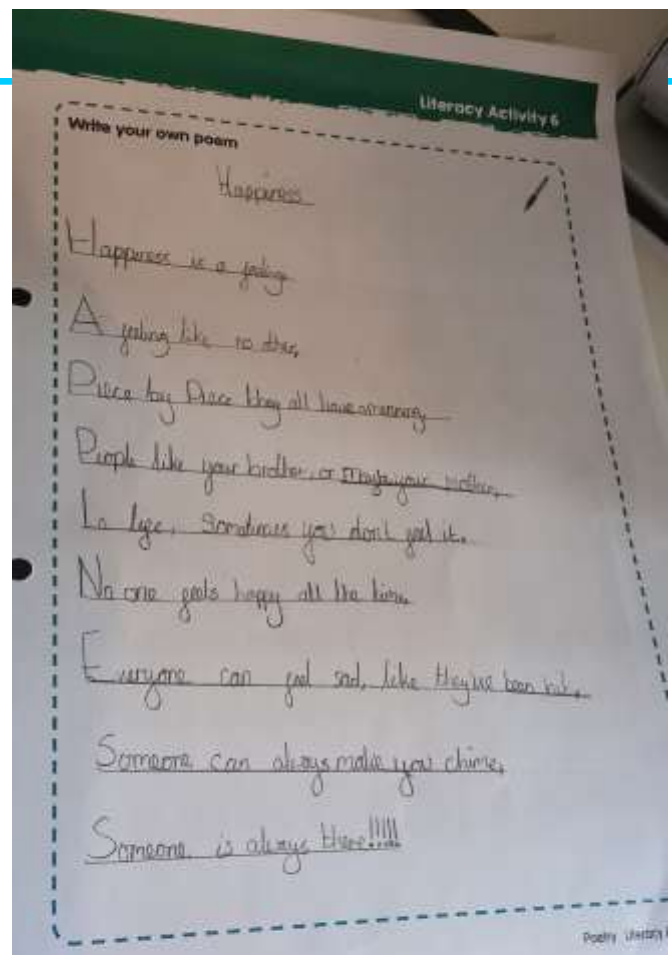 Literacy Activity 6
Write your own poem
Happiness
Happiness is a feeling
A feeling like no other,
Piece by Piece they all have meaning,
People like your brother, or maybe your mother,
In life, Sometimes you don't feel it.
No one feels happy all the time,
Everyone can feel sad, like they've been hit,
Someone can always make you chime,
Someone is always there!!!!!
Poetry Literacy